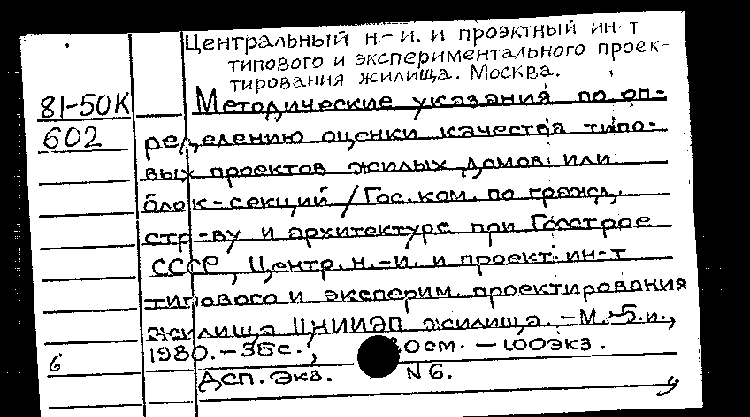 Центральный н.-и. и проэктный ин-т
типового и экспериментального проек-
тирования жилища. Москва.
81-50К Методические указания по оп-
602 ределению оценки качества типо-
вых проектов жилых домов или
блок-секций / Гос. ком. по гражд.
стр-ву и архитектуре при Госстрое
СССР, Центр. н.-и. и проект. ин-т
типового и эксперим. проектирования
жилища ЦНИИЭП жилища. - М.:
1980. - с., см. - 100экз.
6
Дсп. Экз. N 6.